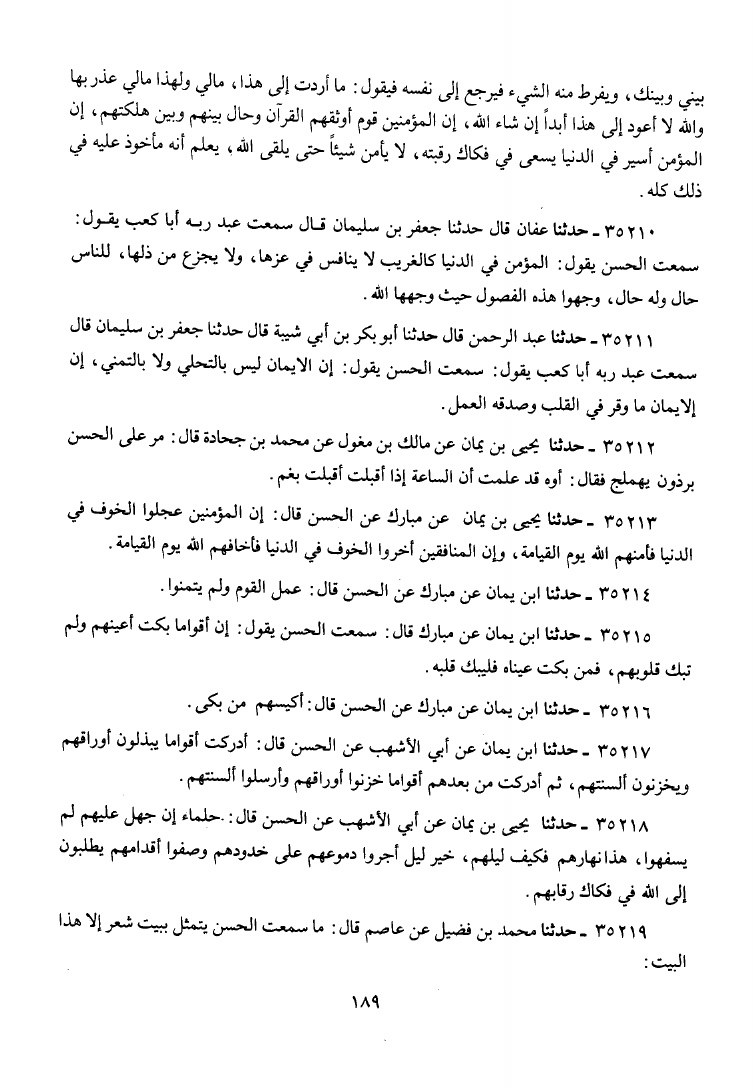 بيني وبينك، ويفرط منه الشيء فيرجع إلى نفسه فيقول: ما أردت إلى هذا، مالي ولهذا مالي عذر بها
والله لا أعود إلى هذا أبداً إن شاء الله، إن المؤمنين قوم أوثقهم القرآن وحال بينهم وبين هلكتهم، إن
المؤمن أسير في الدنيا يسعى في فكاك رقبته، لا يأمن شيئاً حتى يلقى الله، يعلم أنه مأخوذ عليه في
ذلك كله.
٣٥٢١٠ - حدثنا عفان قال حدثنا جعفر بن سليمان قال سمعت عبد ربه أبا كعب يقول:
سمعت الحسن يقول: المؤمن في الدنيا كالغريب لا ينافس في عزها، ولا يجزع من ذلها، للناس
حال وله حال، وجهوا هذه الفصول حيث وجهها الله.
٣٥٢١١ - حدثنا عبد الرحمن قال حدثنا أبو بكر بن أبي شيبة قال حدثنا جعفر بن سليمان قال
سمعت عبد ربه أبا كعب يقول: سمعت الحسن يقول: إن الايمان ليس بالتحلي ولا بالتمني، إن
الإيمان ما وقر في القلب وصدقه العمل.
٣٥٢١٢ - حدثنا يحيى بن يمان عن مالك بن مغول عن محمد بن جحادة قال: مر على الحسن
برذون يهملج فقال: أوه قد علمت أن الساعة إذا أقبلت أقبلت بغم.
٣٥٢١٣ - حدثنا يحيى بن يمان عن مبارك عن الحسن قال: إن المؤمنين عجلوا الخوف في
الدنيا فأمنهم الله يوم القيامة، وإن المنافقين أخروا الخوف في الدنيا فأخافهم الله يوم القيامة.
٣٥٢١٤ - حدثنا ابن يمان عن مبارك عن الحسن قال: عمل القوم ولم يتمنوا.
٣٥٢١٥ - حدثنا ابن يمان عن مبارك قال: سمعت الحسن يقول: إن أقواما بكت أعينهم ولم
تبك قلوبهم، فمن بكت عيناه فليبك قلبه.
٣٥٢١٦ - حدثنا ابن يمان عن مبارك عن الحسن قال: أكيسهم من بكى.
٣٥٢١٧ - حدثنا ابن يمان عن أبي الأشهب عن الحسن قال: أدركت أقواما يبذلون أوراقهم
ويخزنون ألسنتهم، ثم أدركت من بعدهم أقواما خزنوا أوراقهم وأرسلوا ألسنتهم.
٣٥٢١٨ - حدثنا يحيى بن يمان عن أبي الأشهب عن الحسن قال: حلماء إن جهل عليهم لم
يسفهوا، هذا نهارهم فكيف ليلهم، خير ليل أجروا دموعهم على خدودهم وصفوا أقدامهم يطلبون
إلى الله في فكاك رقابهم.
٣٥٢١٩ - حدثنا محمد بن فضيل عن عاصم قال: ما سمعت الحسن يتمثل ببيت شعر إلا هذا
البيت:
١٨٩